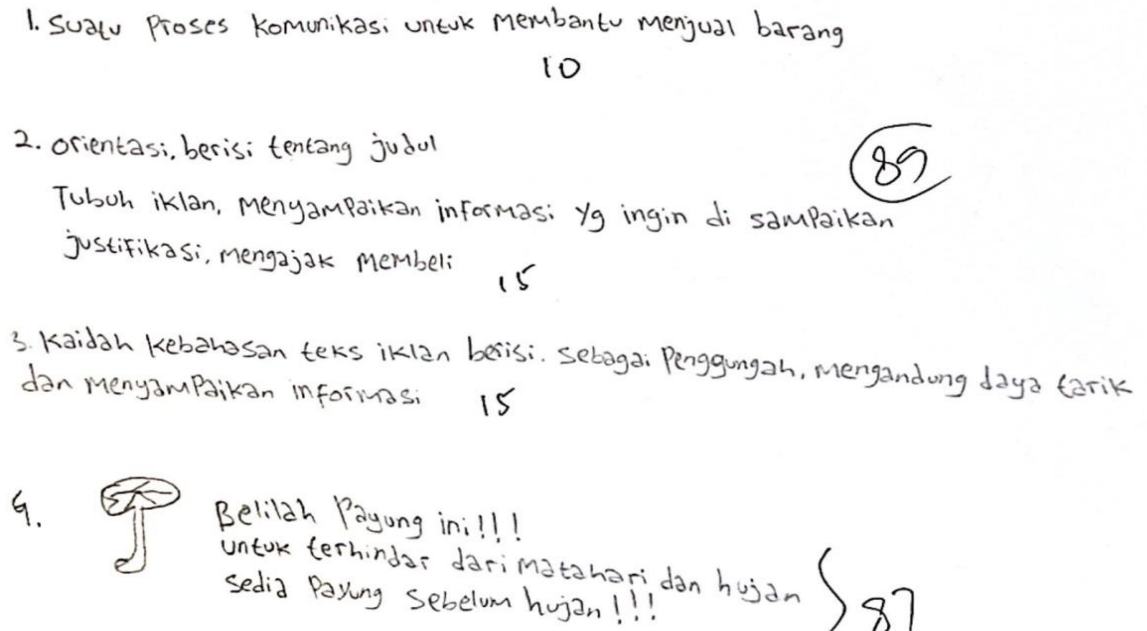 1. Suatu Proses Komunikasi untuk Membantu Menjual barang
10
2. orientasi, berisi tentang judul
89
Tubuh iklan, Menyampaikan informasi yg ingin di sampaikan
justifikasi, mengajak Membeli
15
3. Kaidah kebahasan teks iklan berisi. Sebagai Penggungah, mengandung daya tarik
dan menyampaikan informasi
15
4.
Belilah Payung ini!!!
untuk terhindar dari matahari dan hujan
Sedia Payung Sebelum hujan!!!
87